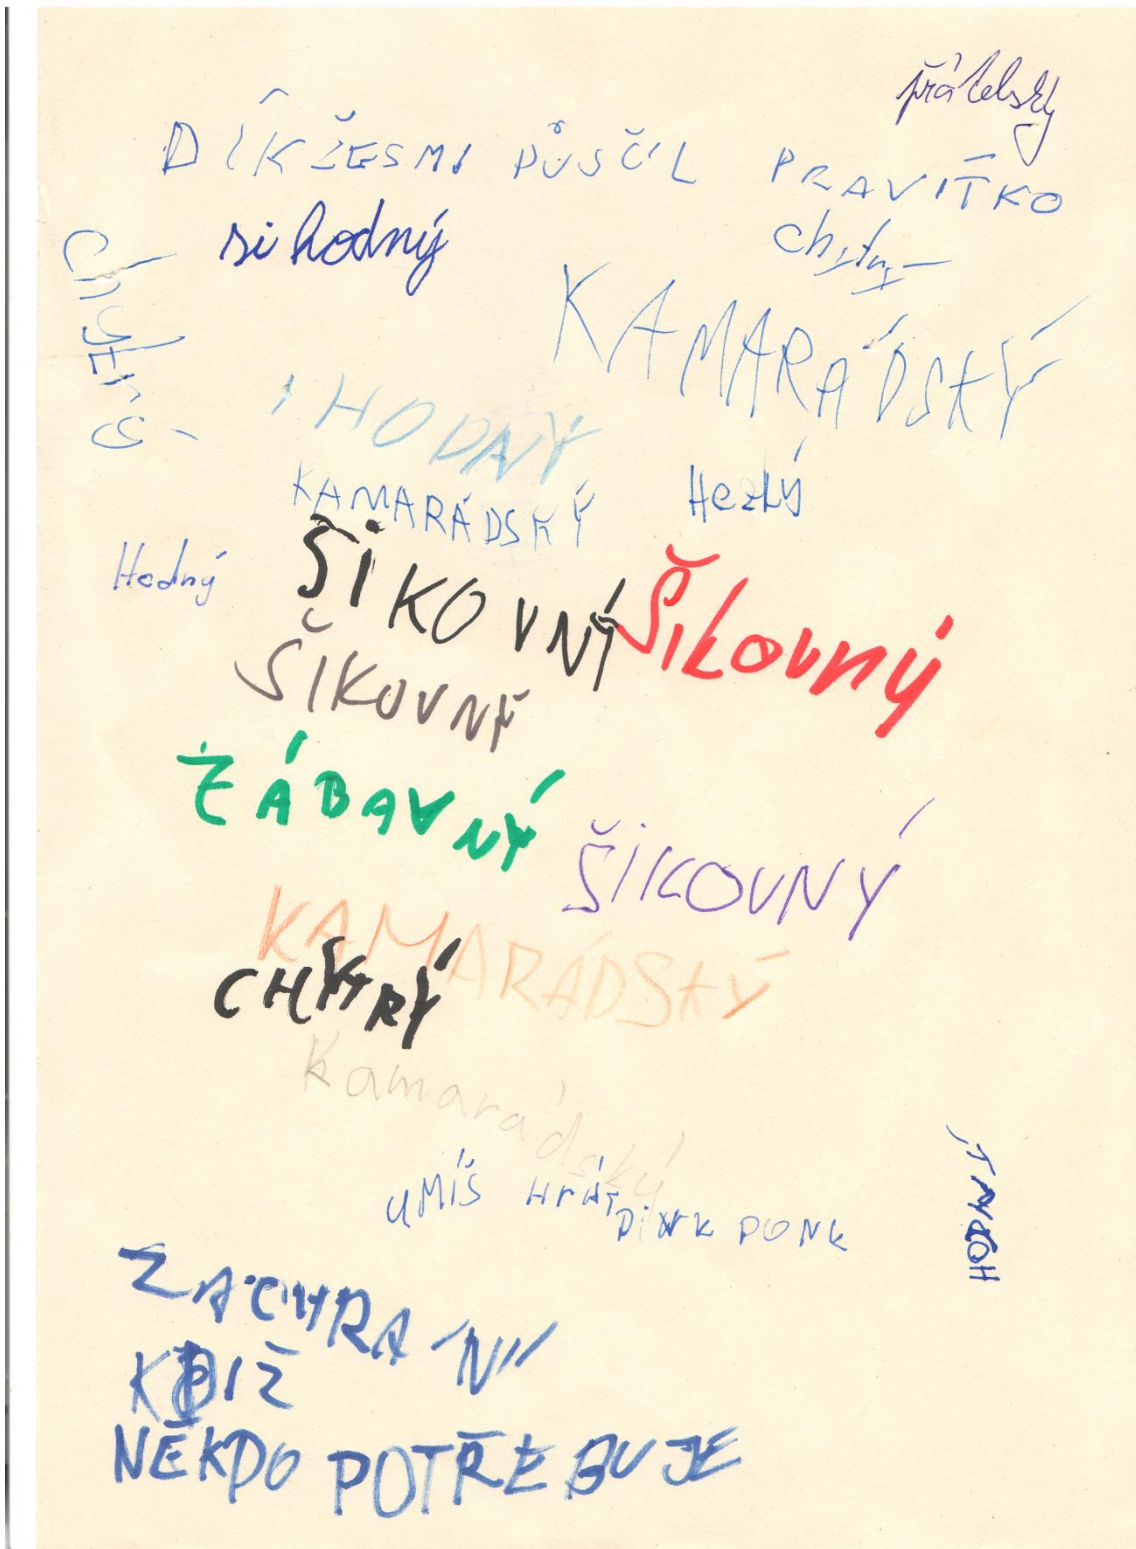 přátelský
DÍK ŽESMI PŮSČIL PRAVÍTKO
si hodný
chytrý
chytrý
KAMARÁDSKÝ
HODNÝ
KAMARÁDSKÝ
Hezký
Hodný
ŠIKOVNÝ
Šikovný
ŠIKOVNÝ
ZÁBAVNÝ
ŠIKOVNÝ
KAMARÁDSKÝ
CHYTRÝ
Kamarádský
UMÍŠ HrÁT PiNK PONK
HODNÝ
ZACHRAŃNÍ
KDIŽ
NĚKDO POTŘEBUJE